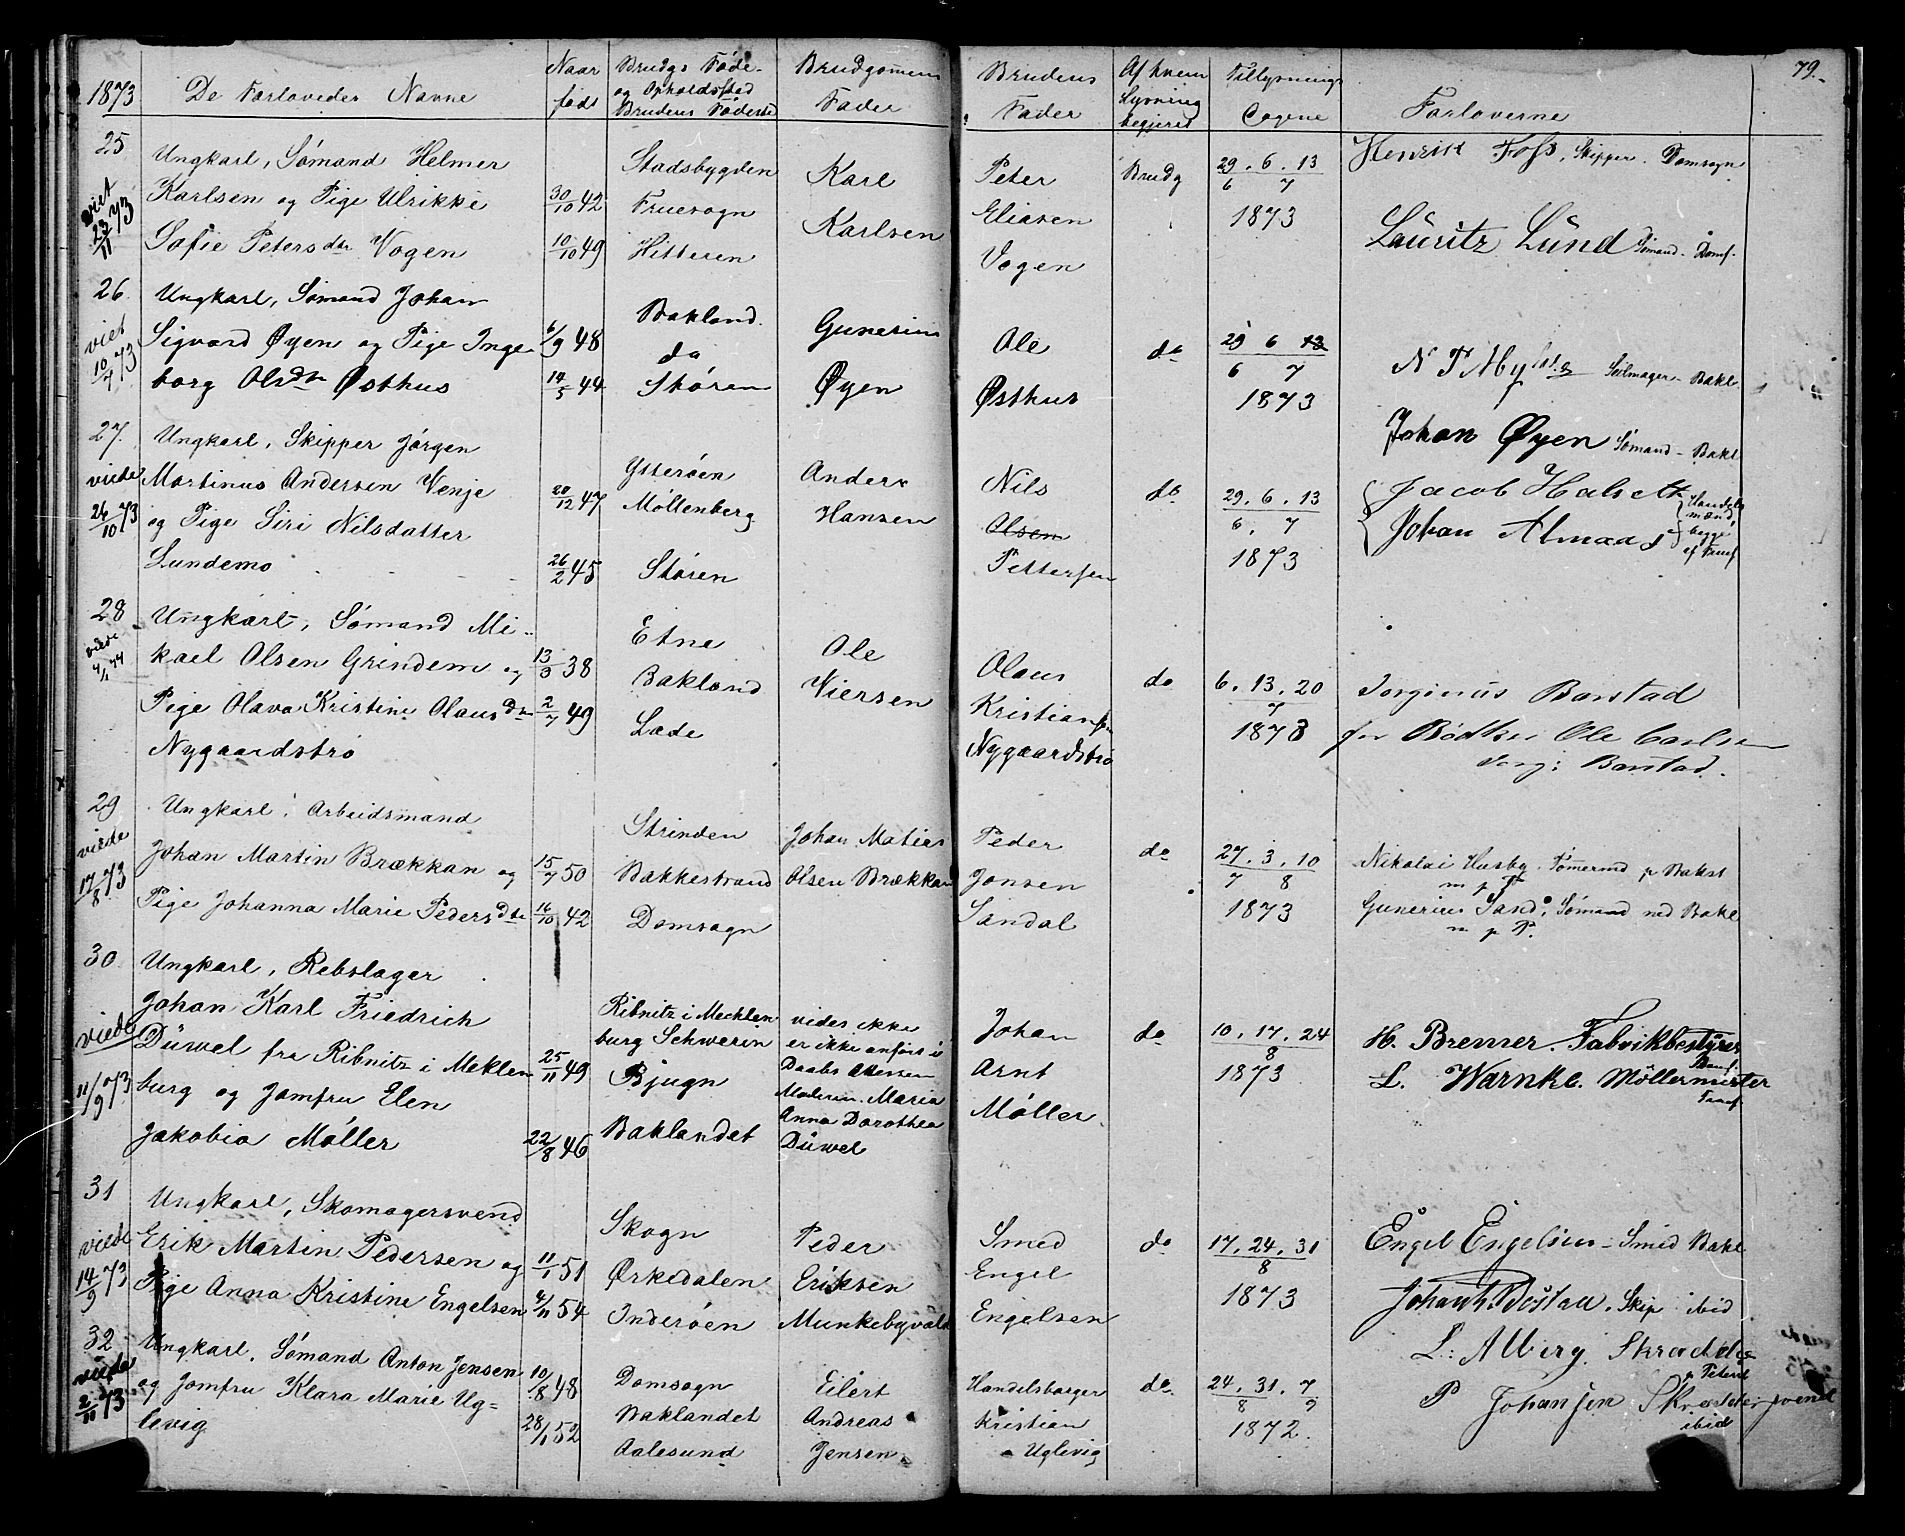 1873
De Forlovedes Navne
Naar født
Brudgs Føde- og Opholdssted
Brudens Fødested
Brudgommens Fader
Brudens Fader
Af hvem Lysning begjeret
Tillysnings Dagene
Forloverne
79.
25
viet 23/11 73
Ungkarl, Sømand Helmer
Karlsen og Pige Ulrikke
Sofie Petersdtr Vogen
30/10 42
10/10 49
Stadsbygden
Fruesogn
Hitteren
Karl
Karlsen
Peter
Eliasen
Vogen
Brudg
29. 6. 13
6 7
1873
Henrik Foss, Skipper. Domsogn
Lauritz Lund Sømand. Doms.
26.
viet 10/7 73
Ungkarl, Sømand Johan
Sigvard Øyen og Pige Inge-
borg Olsdtr Østhus
6/9 48
14/5 44
Bakland.
do
Støren
Gunerius
Øyen
Ole
Østhus
do
29 6 13
6 7
1873
Seilmager Bakl.
Johan Øyen Sømand Bakl
27.
viede 26/10 73
Ungkarl, Skipper Jørgen
Martinus Andersen Venje
og Pige Siri Nilsdatter
Lundemo
20/12 47
26/2 45
Ytterøen
Møllenberg
Støren
Anders
Hansen
Nils
Olsen
Pettersen
do
29. 6. 13
6. 7
1873
Jacob Halseth
Johan Almaas
Handels
mænd,
begge
af Fruesf
28
viede
Ungkarl, Sømand Mi-
kael Olsen Grindem og
Pige Olava Kristine Olausdtr
Nygaardstrø
13/3 38
2/7 49
Etne
Bakland
Lade
Ole
Viersen
Olaus
Kristiansen
Nygaardstrø
do
6. 13. 20
7
1873
Jorginus Barstad
for Bødker Ole Carlsen
Jorg: Barstad.
29
viede 17/8 73
Ungkarl, Arbeidsmand
Johan Martin Brækkan og
Pige Johanna Marie Pedersdtr
15/7 50
16/10 42
Strinden
Bakkestrand
Domsogn
Johan Matias
Olsen Brækkan
Peder
Jonsen
Sandal
do
27. 3. 10
7 8
1873
Nikolai Husby. Tømermd p Bakst
m p P
Gunerius Sand, Sømand ned Bakl
m p P.
30
viede 11/9 73
Ungkarl, Rebslager
Johan Karl Friedrich
Düwel fra Ribnitz i Meklen
burg og Jomfru Elen
Jakobia Møller
25/11 49
22/8 46
Ribnitz i Mecklen
burg Schwerin
Bjugn
Baklandet
vides ikke
er ikke anført i
Daabs Attesten
Moderen Maria
Anna Dorothea
Düwel
Johan
Arnt
Møller
do
10. 17. 24
8
1873
H. Bremer. Fabrikbestyrer
L. Warnke. Møllermester
31
viede 14/9 73
Ungkarl, Skomagersvend
Erik Martin Pedersen og
Pige Anna Kristine Engelsen
11/1 51
4/11 54
Skogn
Ørkedalen
Inderøen
Peder
Eriksen
Munkebyvald
Smed
Engel
Engelsen
do
17. 24. 31
8
1873
Engel Engelsen Smed Bakl
Skip ibid
32
viede 2/11 73
Ungkarl. Sømand Anton Jensen
og Jomfru Klara Marie Ug=
levig
10/8 48
28/1 52
Domsogn
Baklandet
Aalesund
Eilert
Andreas
Jensen
Handelsborger
Kristian
Uglevig
do.
24. 31. 7
8 9
1872.
L: Alberg. Skrædder
P Johansen Skræddersvend
ibid